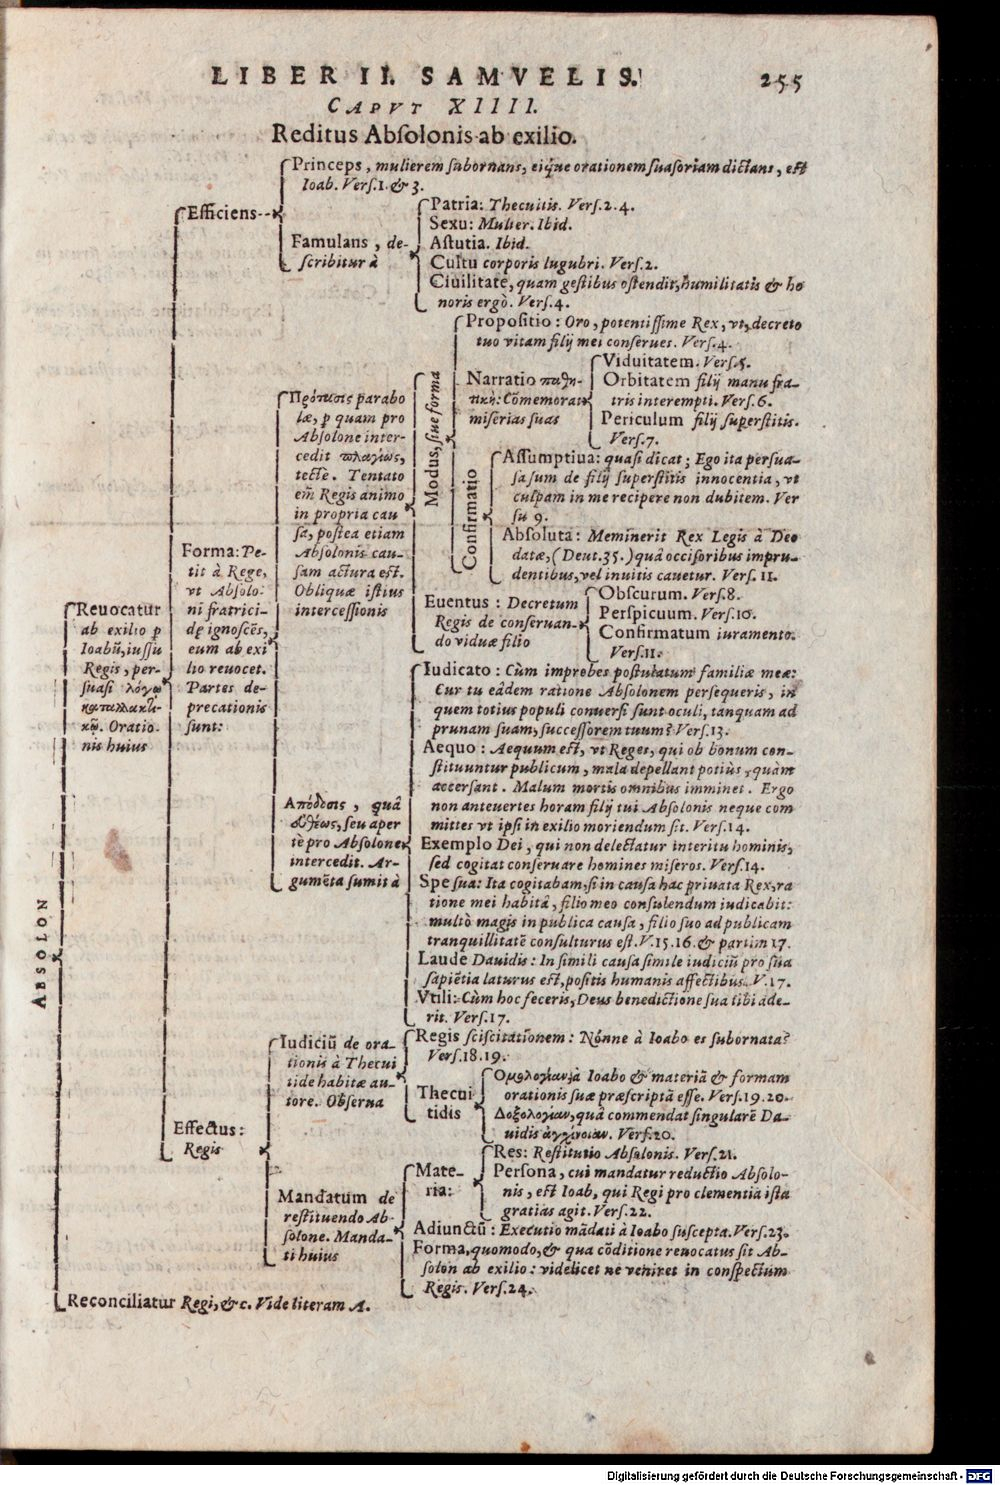 LIBER II. SAMVELIS.
255
CAPVT XIIII.
Reditus Abſolonis ab exilio.
ABSOLON
Reuocatur
ab exilio ꝑ
Ioabū, iuſſu
Regis, per-
ſuaſi λόγῳ
καταλλακτι-
κῷ. Oratio-
nis huius
Efficiens
Princeps, mulierem ſubornans, eiq́ue orationem ſuaſoriam dictans, eſt
Ioab. Verſ.1. & 3.
Famulans, de-
ſcribitur à
Patria: Thecuitis. Verſ.2.4.
Sexu: Mulier. Ibid.
Aſtutia. Ibid.
Cultu corporis lugubri. Verſ.2.
Ciuilitate, quam geſtibus oſtendit, humilitatis & ho
noris ergò. Verſ.4.
Forma: Pe-
tit à Rege,
vt Abſolo-
ni fratrici-
dę ignoſcēs,
eum ab exi
lio reuocet.
Partes de-
precationis
ſunt:
Πρότασις parabo
læ, ꝑ quam pro
Abſolone inter-
cedit πλαγίως,
tectè. Tentato
em̄ Regis animo
in propria cau
ſa, poſtea etiam
Abſolonis cau-
ſam actura eſt.
Obliquæ iſtius
interceſſionis
Modus, ſiue forma
Propoſitio: Oro, potentiſſime Rex, vt, decreto
tuo vitam filij mei conſerues. Verſ.4.
Narratio παθη-
τικὴ: Cōmemorat
miſerias ſuas
Viduitatem. Verſ.5.
Orbitatem filij manu fra-
tris interempti. Verſ.6.
Periculum filij ſuperſtitis.
Verſ.7.
Confirmatio
Aſſumptiua: quaſi dicat; Ego ita perſua-
ſa ſum de filij ſuperſtitis innocentia, vt
culpam in me recipere non dubitem. Ver
ſu 9.
Abſoluta: Meminerit Rex Legis à Deo
datæ, (Deut.35.) quâ occiſoribus impru-
dentibus, vel inuitis cauetur. Verſ. 11.
Euentus: Decretum
Regis de conſeruan-
do viduæ filio
Obſcurum. Verſ.8.
Perſpicuum. Verſ.10.
Confirmatum iuramento.
Verſ.11.
Απόδοσις, quâ
εὐθέως, ſeu aper
tè pro Abſolone
intercedit. Ar-
gumēta ſumit à
Iudicato: Cùm improbes poſtulatum familiæ meæ:
Cur tu eâdem ratione Abſolonem perſequeris, in
quem totius populi conuerſi ſunt oculi, tanquam ad
prunam ſuam, ſucceſſorem tuum? Verſ.13.
Aequo: Aequum eſt, vt Reges, qui ob bonum con-
ſtituuntur publicum, mala depellant potiùs, quàm
accerſant. Malum mortis omnibus imminet. Ergo
non anteuertes horam filij tui Abſolonis neque com
mittes vt ipſi in exilio moriendum ſit. Verſ.14.
Exemplo Dei, qui non delectatur interitu hominis,
ſed cogitat conſeruare homines miſeros. Verſ.14.
Spe ſua: Ita cogitabam, ſi in cauſa hac priuata Rex, ra
tione mei habitâ, filio meo conſulendum iudicabit:
multò magis in publica cauſa, filio ſuo ad publicam
tranquillitatē conſulturus eſt. V.15.16. & partim 17.
Laude Dauidis: In ſimili cauſa ſimile iudiciū pro ſua
ſapiētia laturus eſt, poſitis humanis affectibus. V.17.
Vtili: Cùm hoc feceris, Deus benedictione ſua tibi ade-
rit. Verſ.17.
Effectus:
Regis
Iudiciū de ora-
tionis à Thecui
tide habitæ au-
tore. Obſerua
Regis ſciſcitationem: Nónne à Ioabo es ſubornata?
Verſ.18.19.
Thecui
tidis
Ομολογίαν, à Ioabo & materiā & formam
orationis ſuæ præſcriptā eſſe. Verſ.19.20.
Δοξολογίαν, quâ commendat ſingularē Da-
uidis ἀγχίνοιαν. Verſ.20.
Mandatum de
reſtituendo Ab-
ſolone. Manda-
ti huius
Mate-
ria:
Res: Reſtitutio Abſalonis. Verſ.21.
Perſona, cui mandatur reductio Abſolo-
nis, eſt Ioab, qui Regi pro clementia iſta
gratias agit. Verſ.22.
Adiunctū: Executio mādati à Ioabo ſuſcepta. Verſ.23.
Forma, quomodo, & qua cōditione reuocatus ſit Ab-
ſolon ab exilio: videlicet ne veniret in conſpectum
Regis. Verſ.24.
Reconciliatur Regi, &c. Vide literam A.
Digitalisierung gefördert durch die Deutsche Forschungsgemeinschaft - DFG